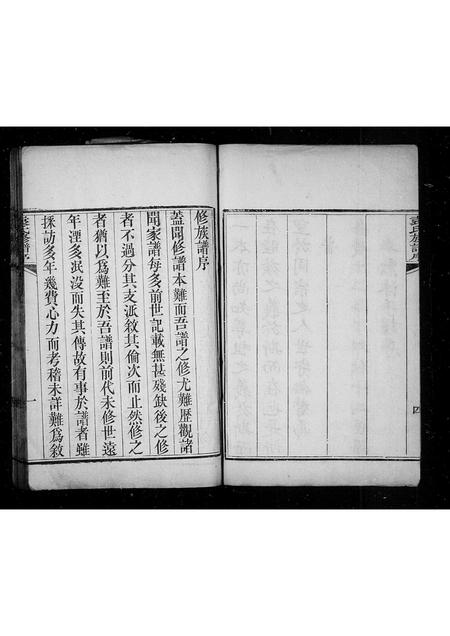 修族譜序
蓋聞修譜本難而吾譜之修尤難歷觀諸
聞家譜每多前世記載無甚殘缺後之修
者不過分其支派敘其倫次而止然修之
者猶以為難至於吾譜則前代未修世遠
年湮多泯沒而失其傳故有事於譜者雖
採訪多年幾費心力而考稽未詳難為敘
氏族譜序
一
氏族譜序
四